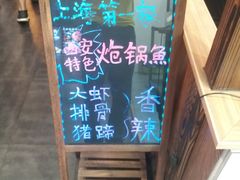 上海第一家
西安特色 炝锅魚
大虾
排骨
猪蹄
香辣